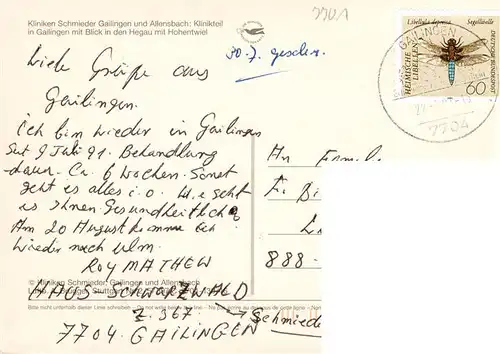 7701
Kliniken Schmieder Gailingen und Allensbach: Klinikteil
in Gailingen mit Blick in den Hegau mit Hohentwiel
30.7. geschr.
Libellula depressa Segellibelle
HEIMISCHE LIBELLEN
DEUTSCHE BUNDESPOST
60
GAILINGEN
7704
Viele Grüße aus
Gailingen.
Ich bin wieder in Gailingen
Seit 9 Juli 91. Behandlung
dauer. Ca. 6 Wochen. Sonst
geht es alles i.o. Wie geht
es Ihnen Gesundheitlich?
Am 20 August komme ich
wieder nach Ulm.
ROY MATHEW
An Familie
F. Bi
888-
© Kliniken Schmieder, Gailingen und Allensbach
HAUS SCHWARZWALD
Bitte nicht unterhalb dieser Linie schreiben
Z. 367 → Schmieder
7704 GAILINGEN